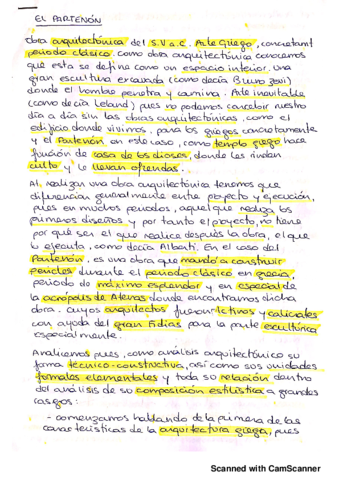 EL PARTENÓN
Obra arquitectónica del S.V a.C. Arte Griego, concretamt
periodo clásico. Como obra arquitectónica conocemos
que esta se define como un espacio interior, una
gran escultura excavada (como decía Bruno Zevi)
donde el hombre penetra y camina. Arte inevitable
(como decía Leland) pues no podemos concebir nuestro
día a día sin las obras arquitectónicas, como el
edificio donde vivimos, para los griegos concretamente
y el Partenón en este caso, como templo griego hace
función de casa de los dioses, donde les rinden
culto y le llevan ofrendas.
Al realizar una obra arquitectónica tenemos que
diferenciar generalmente entre proyecto y ejecución,
pues en muchos periodos, aquel que realiza los
primeros diseños y por tanto el proyecto, no tiene
por qué ser el que realice después la obra, el que
lo ejecuta, como decía Alberti. En el caso del
Partenón, es una obra que mandó a construir
Pericles durante el periodo clásico en Grecia,
periodo de máximo esplendor y en especial de
la acrópolis de Atenas donde encontramos dicha
obra. Cuyos arquitectos fueron Ictinos y Calícrates
con ayuda del gran Fidias para la parte escultórica
especialmente.
Analicemos pues, como análisis arquitectónico su
forma técnico-constructiva, así como sus unidades
formales elementales y toda su relación dentro
del análisis de su composición estilística a grandes
rasgos:
- Comenzamos hablando de la primera de las
características de la arquitectura griega, pues
Scanned with CamScanner